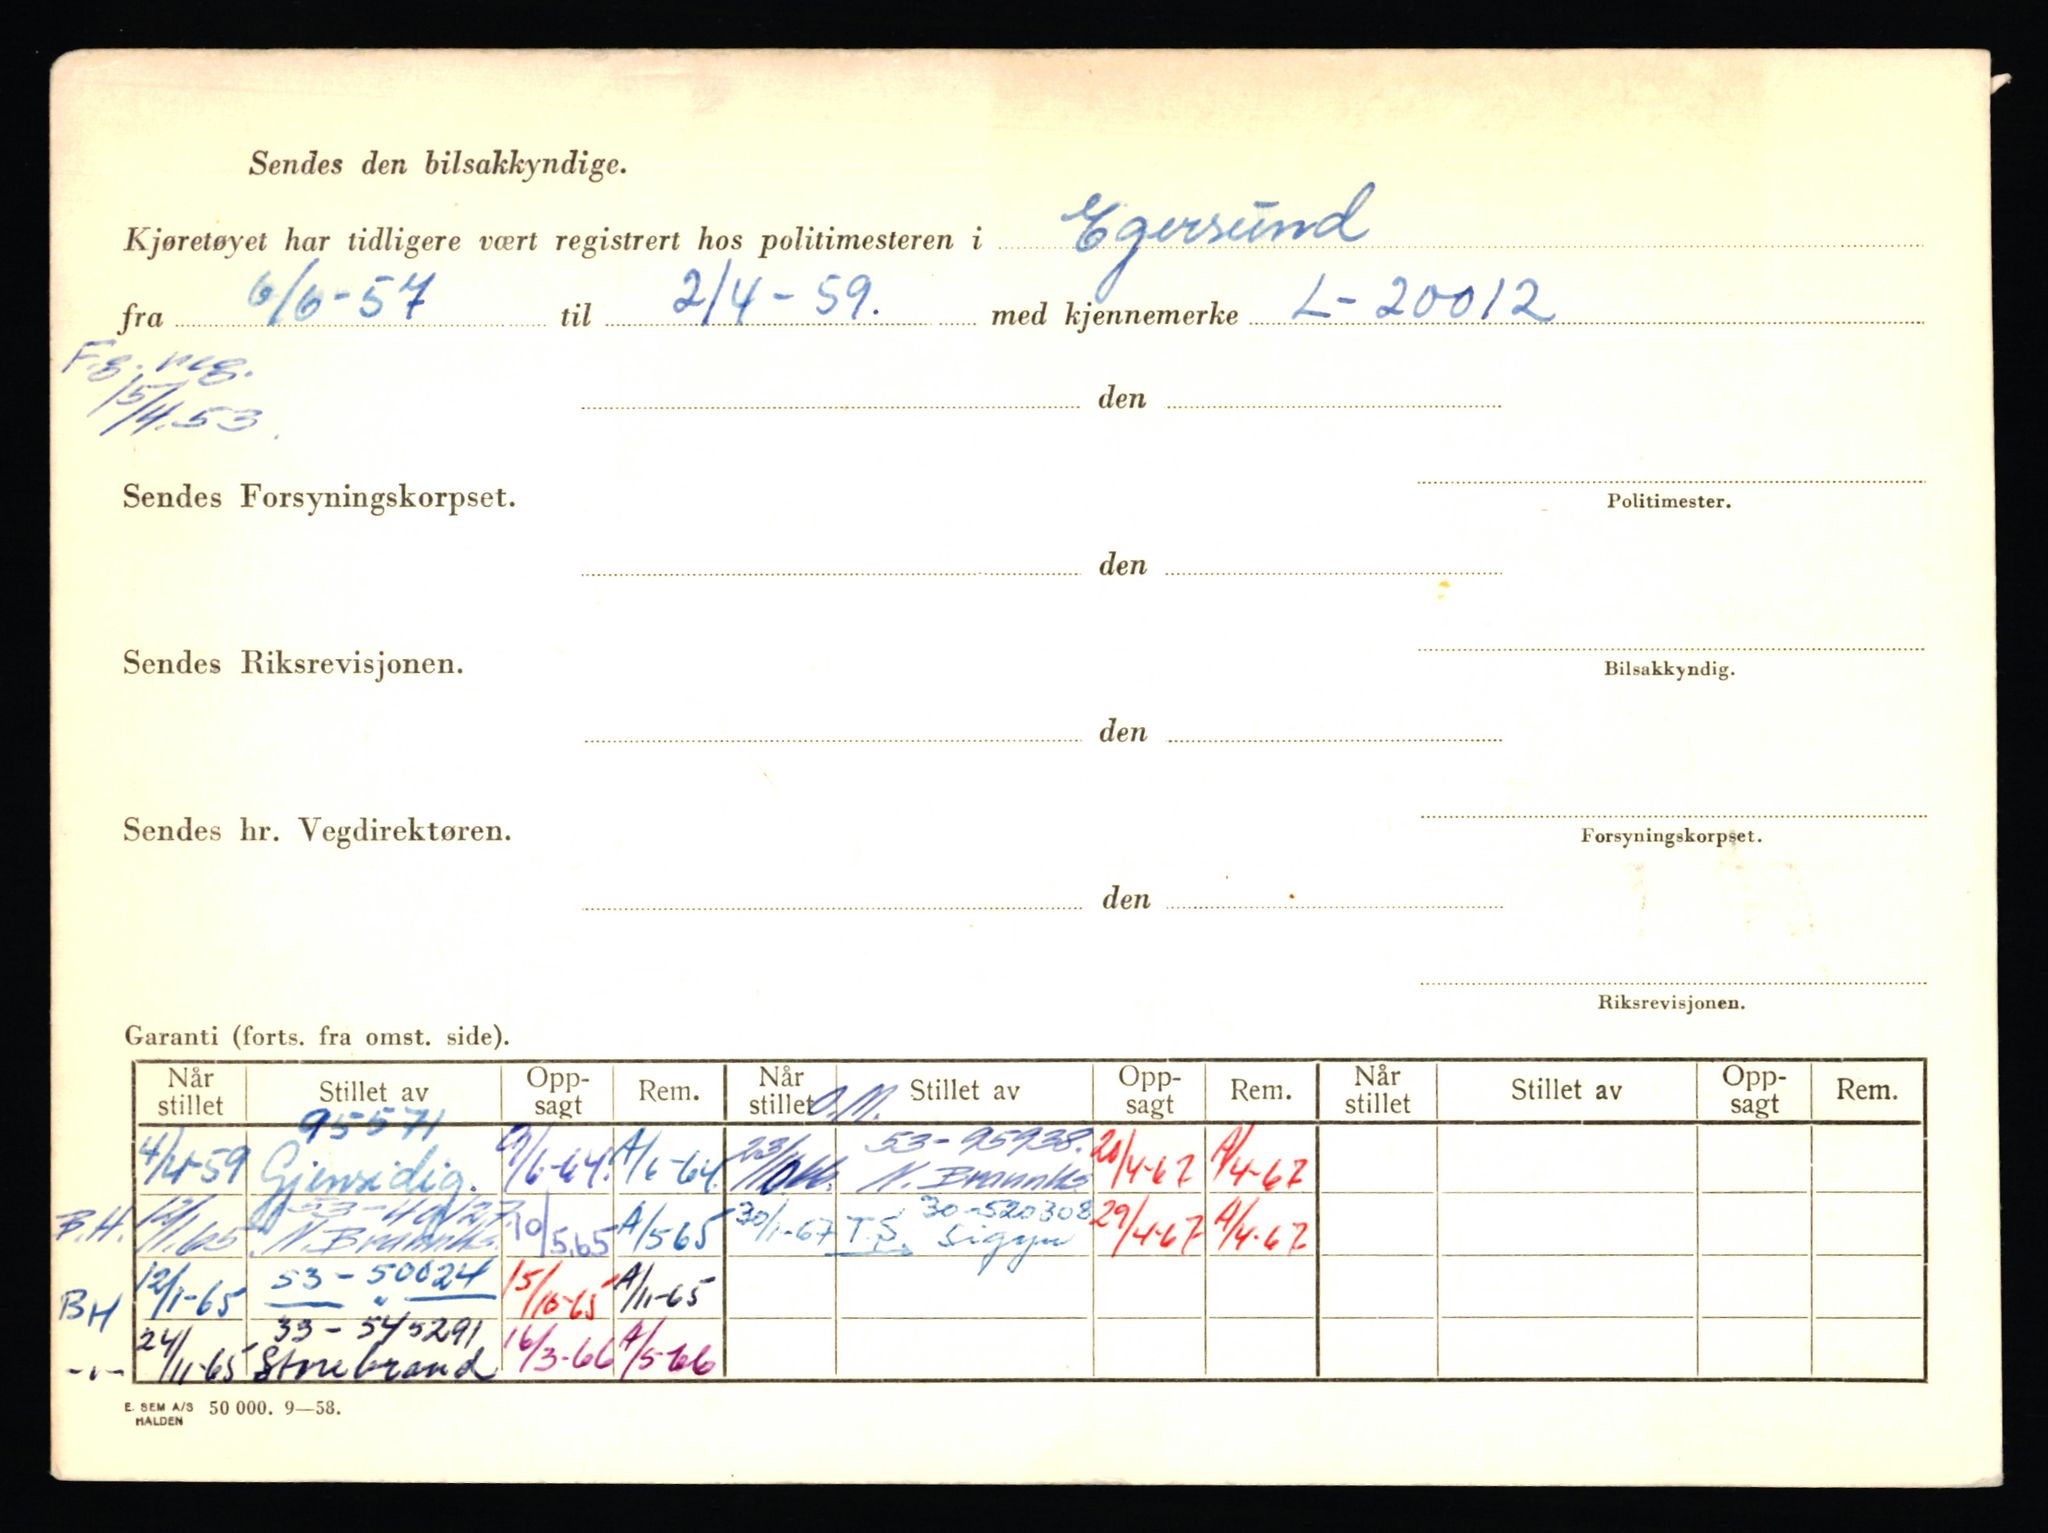 Sendes den bilsakkyndige.
Kjøretøyet har tidligere vært registrert hos politimesteren i Egersund
fra 6/6-57 til 2/4-59. med kjennemerke L-20012
F.g. neg.
15/4.53.
den
Sendes Forsyningskorpset.
Politimester.
den
Sendes Riksrevisjonen.
Bilsakkyndig.
den
Sendes hr. Vegdirektøren.
Forsyningskorpset.
den
Riksrevisjonen.
Garanti (forts. fra omst. side).
Når stillet Stillet av Opp-sagt Rem. Når stillet Stillet av Opp-sagt Rem. Når stillet Stillet av Opp-sagt Rem.
O.M.
95571 53-95938.
4/4-59 Gjensidig. 9/6-64. A/6-64. 20/4-67 A/4-67
B.H. 12/1.65 N. 10/5.65 A/5-65 30/1-67 T.S. 30-520308 Sigyn 29/4-67 A/4-67
BH 12/1-65 53-50024 " 15/10-65 A/11-65
33-545291
-"- 24/11-65 Storebrand 16/3-66 A/5-66
E. SEM A/S HALDEN 50 000. 9—58.